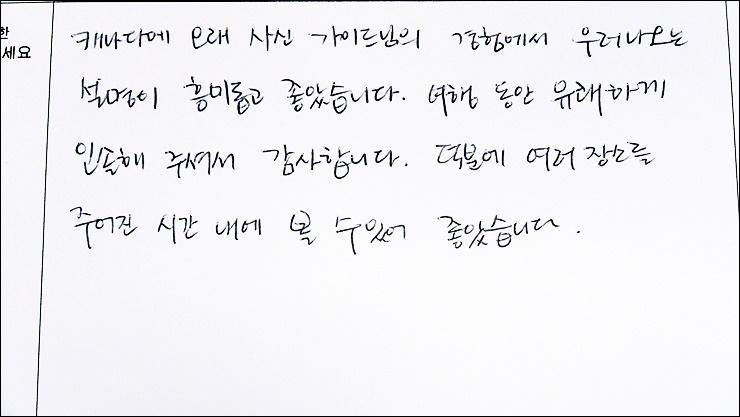 한
세요
캐나다에 오래 사신 가이드님의 경험에서 우러나오는
설명이 흥미롭고 좋았습니다. 여행 동안 유쾌하게
인솔해 주셔서 감사합니다. 덕분에 여러 장소를
주어진 시간 내에 볼 수 있어 좋았습니다.